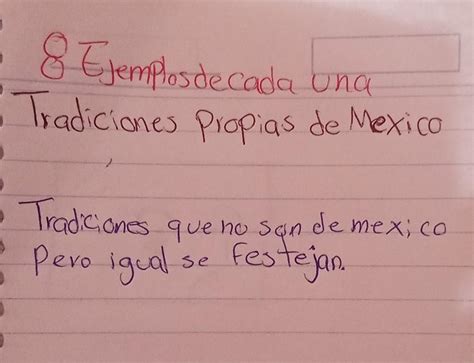 8 Ejemplos de cada una
Tradiciones Propias de Mexico
Tradiciones que no son de mexico
Pero igual se Festejan.